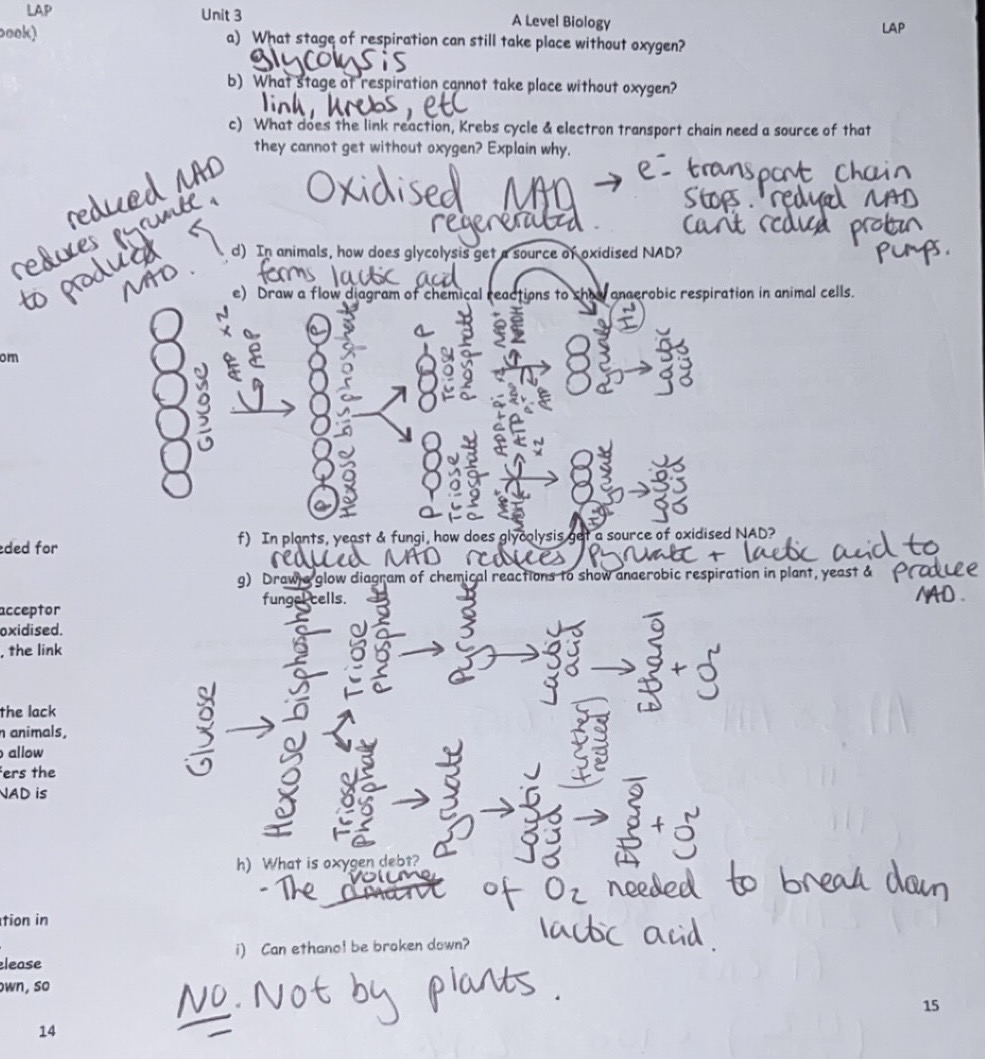 LAP
Unit 3
A Level Biology
LAP
book)
a) What stage of respiration can still take place without oxygen?
glycolysis
b) What stage of respiration cannot take place without oxygen?
link, Krebs, etc
c) What does the link reaction, Krebs cycle & electron transport chain need a source of that
they cannot get without oxygen? Explain why.
Oxidised NAD
regenerated.
→ e⁻ transport chain
stops. reduced NAD
can't reduced protein
pumps.
reduced NAD
reduces pyruvate
to produced
NAD.
d) In animals, how does glycolysis get a source of oxidised NAD?
forms lactic acid
e) Draw a flow diagram of chemical reactions to show anaerobic respiration in animal cells.
Glucose
ATP x2
ADP
P
P
Hexose bisphosphate
P
Triose
phosphate
P
Triose
phosphate
NAD+
NADH
ADP+Pi
ATP
x2
ATP
Pyruvate
H2
Lactic
acid
H2
Pyruvate
Lactic
acid
om
f) In plants, yeast & fungi, how does glycolysis get a source of oxidised NAD?
reduced NAD reduces pyruvate + lactic acid to
produce
NAD.
eded for
g) Draw a glow diagram of chemical reactions to show anaerobic respiration in plant, yeast &
fungal cells.
Glucose
Hexose bisphosphate
Triose
phosphate
Triose
phosphate
Pyruvate
Pyruvate
Lactic
acid
Lactic
acid
(further
reduced)
Ethanol
+
CO2
Ethanol
+
CO2
acceptor
oxidised.
, the link
the lack
n animals,
o allow
fers the
NAD is
h) What is oxygen debt?
- The volume of O2 needed to break down
lactic acid.
tion in
i) Can ethanol be broken down?
elease
own, so
NO. Not by plants.
14
15